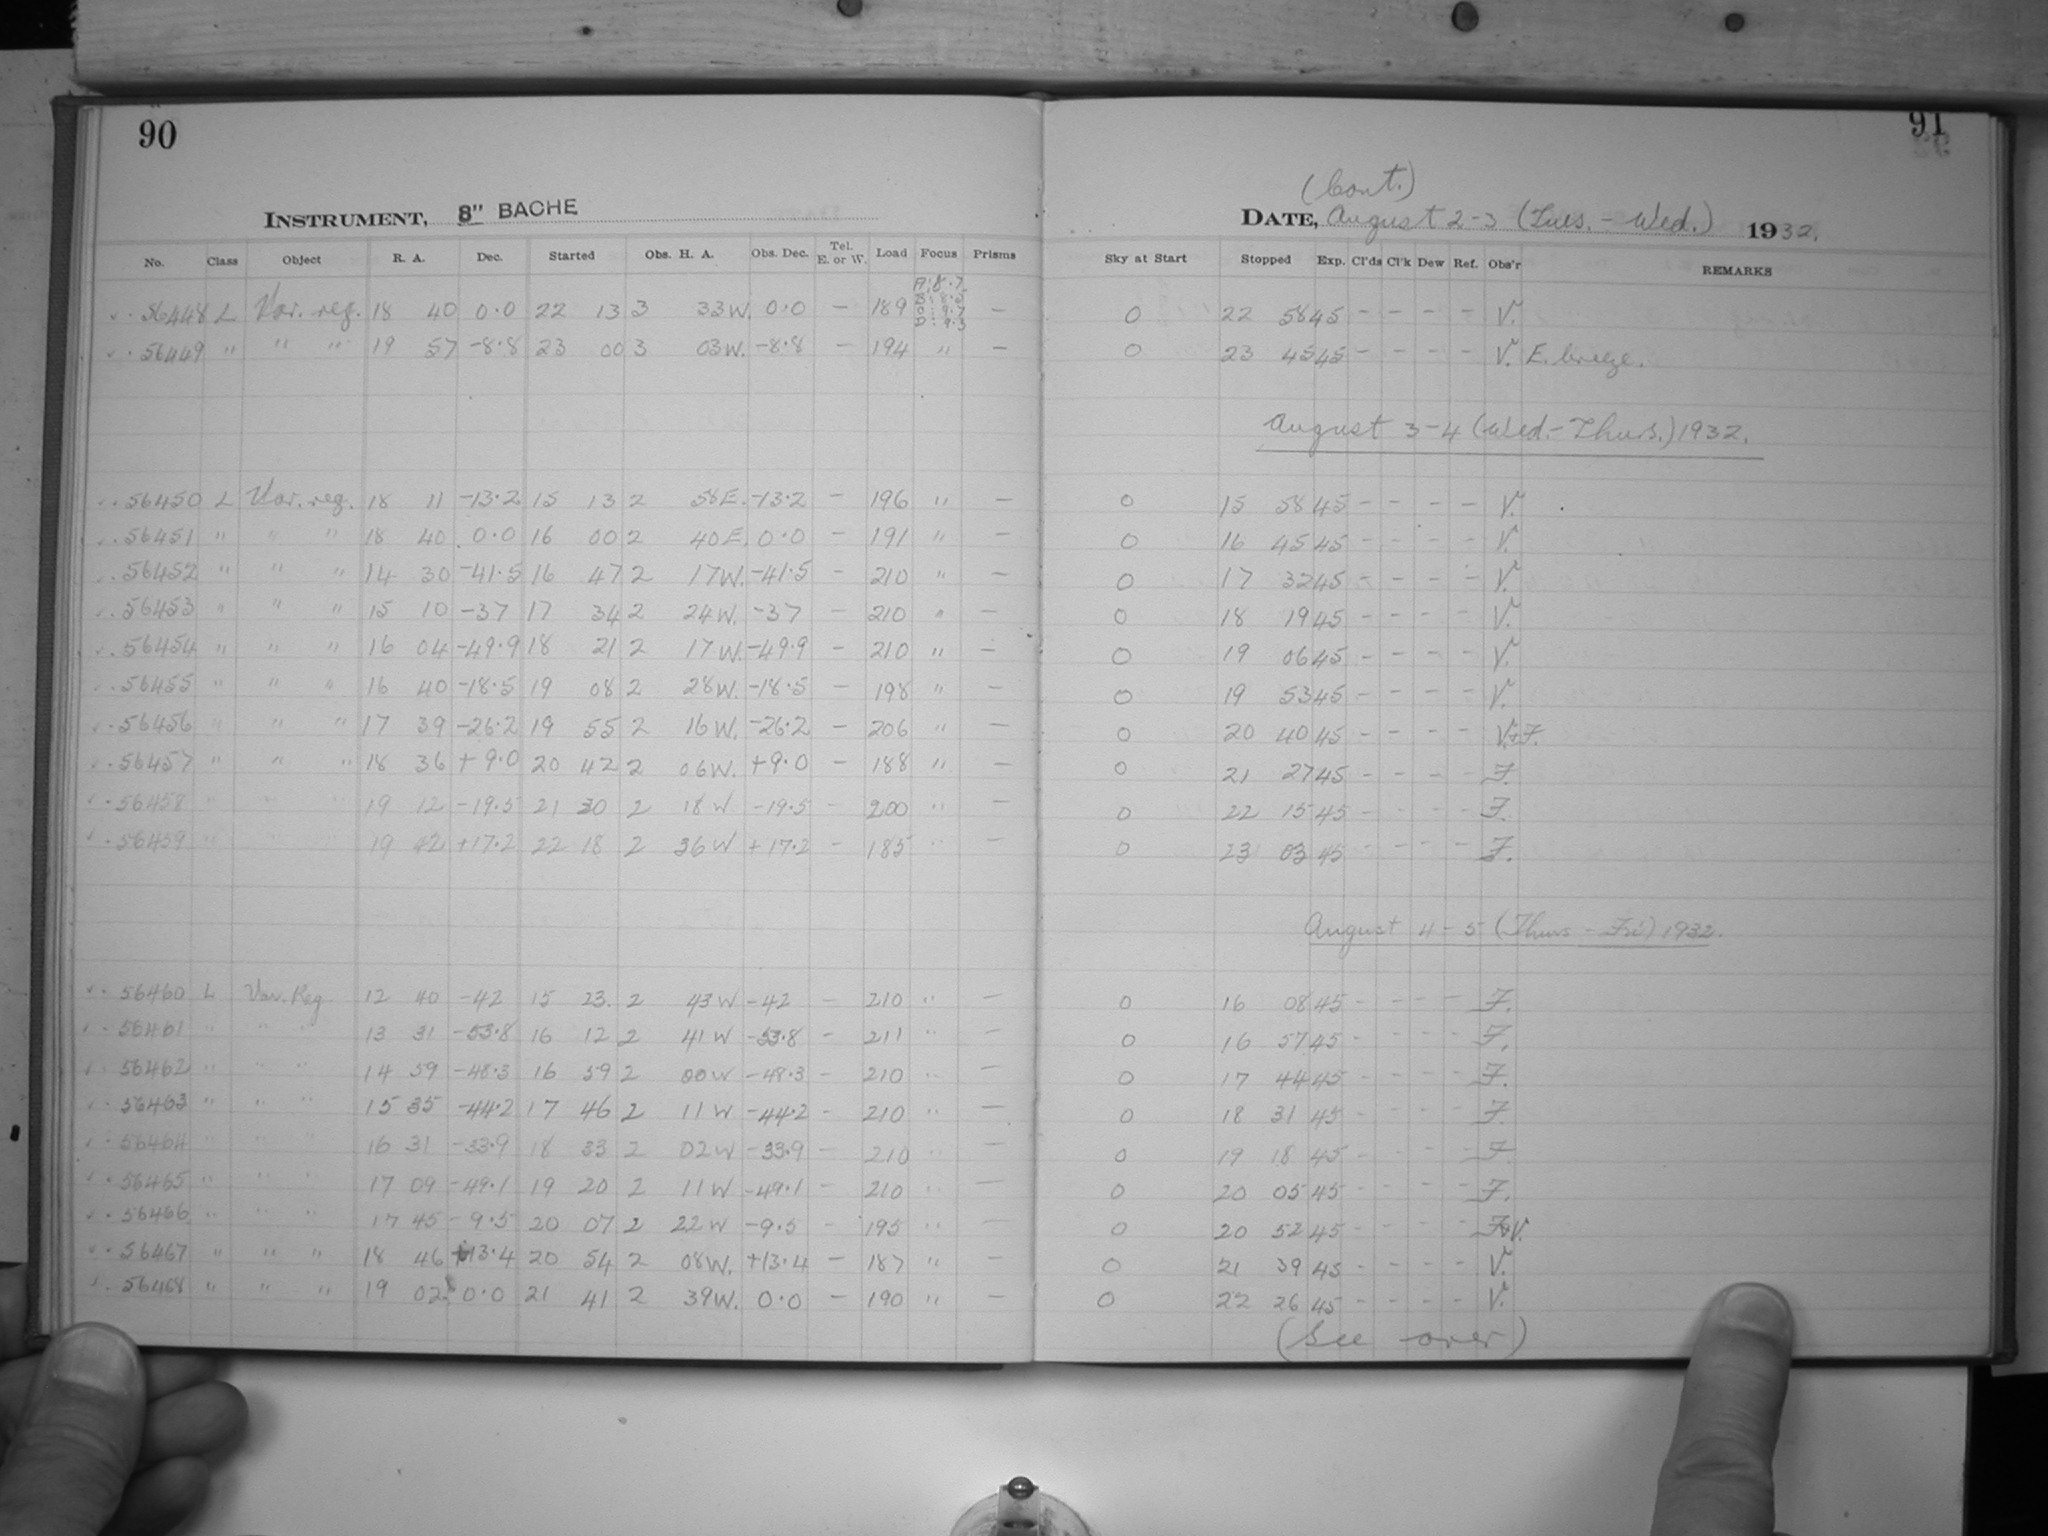 90
91
INSTRUMENT, 8" BACHE
(Cont.)
DATE, August 2-3 (Tues. - Wed.) 1932.
No. Class Object R. A. Dec. Started Obs. H. A. Obs. Dec. Tel. E. or W. Load Focus Prisms Sky at Start Stopped Exp. Cl'ds Cl'k Dew Ref. Obs'r REMARKS
56448 L Var. reg. 18 40 0.0 22 13 3 33 W. 0.0 - 189 A: 8.7 B: 8.5 C: 9.7 D: 9.3 - 0 22 58 45 - - - - V.
56449 " " " 19 57 -8.8 23 00 3 03 W. -8.8 - 194 " - 0 23 45 45 - - - - V. E. breeze.
August 3-4 (Wed.-Thurs.) 1932.
56450 L Var. reg. 18 11 -13.2 15 13 2 58 E. -13.2 - 196 " - 0 15 58 45 - - - - V.
56451 " " " 18 40 0.0 16 00 2 40 E. 0.0 - 191 " - 0 16 45 45 - - - - V.
56452 " " " 14 30 -41.5 16 47 2 17 W. -41.5 - 210 " - 0 17 32 45 - - - - V.
56453 " " " 15 10 -37 17 34 2 24 W. -37 - 210 " - 0 18 19 45 - - - - V.
56454 " " " 16 04 -49.9 18 21 2 17 W. -49.9 - 210 " - 0 19 06 45 - - - - V.
56455 " " " 16 40 -18.5 19 08 2 28 W. -18.5 - 198 " - 0 19 53 45 - - - - V.
56456 " " " 17 39 -26.2 19 55 2 16 W. -26.2 - 206 " - 0 20 40 45 - - - - V.+F.
56457 " " " 18 36 +9.0 20 42 2 06 W. +9.0 - 188 " - 0 21 27 45 - - - - F.
56458 " " " 19 12 -19.5 21 30 2 18 W -19.5 - 200 " - 0 22 15 45 - - - - F.
56459 " " " 19 42 +17.2 22 18 2 36 W +17.2 - 185 " - 0 23 03 45 - - - - F.
August 4-5 (Thurs - Fri) 1932.
56460 L Var. Reg 12 40 -42 15 23. 2 43 W -42 - 210 " - 0 16 08 45 - - - - F.
56461 " " " 13 31 -53.8 16 12 2 41 W -53.8 - 211 " - 0 16 57 45 - - - - F.
56462 " " " 14 59 -48.3 16 59 2 00 W -48.3 - 210 " - 0 17 44 45 - - - - F.
56463 " " " 15 35 -44.2 17 46 2 11 W -44.2 - 210 " - 0 18 31 45 - - - - F.
56464 " " " 16 31 -33.9 18 33 2 02 W -33.9 - 210 " - 0 19 18 45 - - - - F.
56465 " " " 17 09 -49.1 19 20 2 11 W -49.1 - 210 " - 0 20 05 45 - - - - F.
56466 " " " 17 45 -9.5 20 07 2 22 W -9.5 - 195 " - 0 20 52 45 - - - - F+V.
56467 " " " 18 46 +13.4 20 54 2 08 W. +13.4 - 187 " - 0 21 39 45 - - - - V.
56468 " " " 19 02 0.0 21 41 2 39 W. 0.0 - 190 " - 0 22 26 45 - - - - V.
(See over)